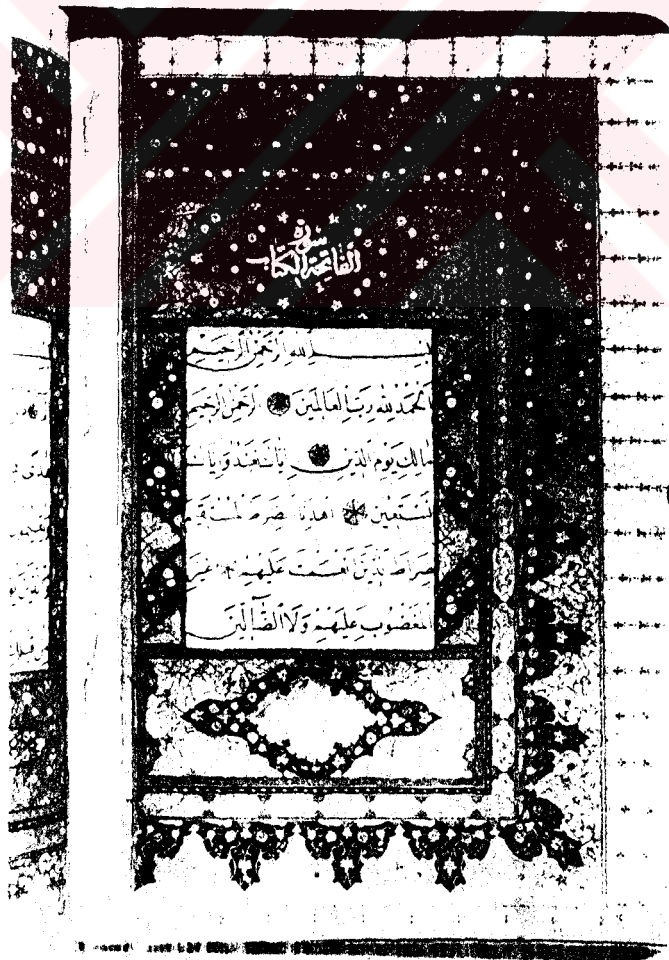 سورة
الفاتحة الكتاب
بســــم الله الرحمن الرحيم
الحمد لله رب العالمين الرحمن الرحيم
مالك يوم الدين اياك نعبد واياك
نستعين اهدنا الصراط المستقيم
صراط الذين انعمت عليهم غير
المغضوب عليهم ولا الضالين